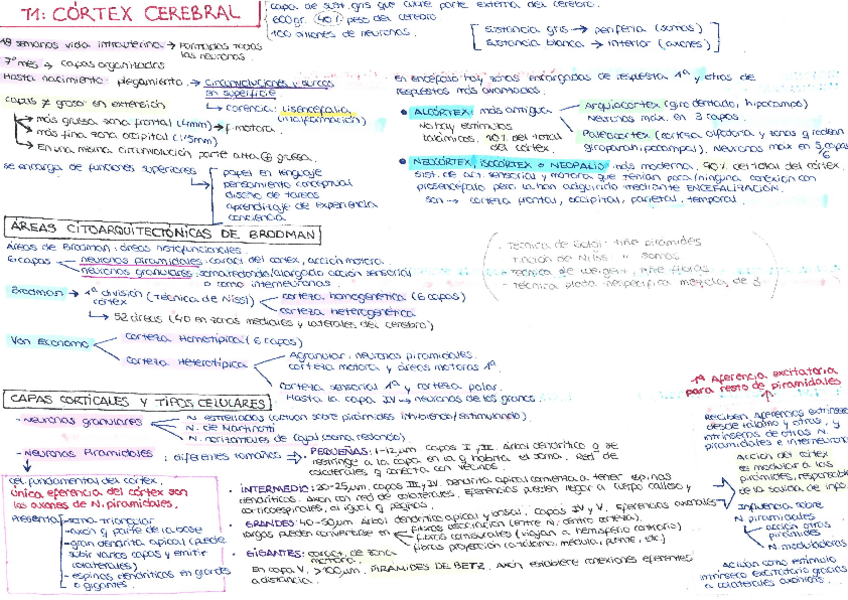 T1: CÓRTEX CEREBRAL
capa de sust. gris que cubre parte externa del cerebro.
600gr. 40% peso del cerebro
100 billones de neuronas.
sustancia gris → periferia (somas)
sustancia blanca → interior (axones)
18 semanas vida intrauterina → formadas todas
las neuronas.
7º mes → capas organizadas
Hasta nacimiento: plegamiento → circunvoluciones y surcos
en superficie
↳ carencia: lisencefalia
(malformación)
capas ≠ grosor en extensión
más gruesa zona frontal (4mm) → f. motora.
más fina zona occipital (1'5mm)
en una misma circunvolución parte alta ⊕ gruesa.
se encarga de funciones superiores
papel en lenguaje
pensamiento conceptual
diseño de tareas
aprendizaje de experiencia
conciencia
en encéfalo hay zonas encargadas de respuesta 1ª y otras de
respuestas más avanzadas.
• ALOCÓRTEX: más antigua
No hay estímulos
talámicos. 10% del total
del córtex.
Arquicortex (giro dentado, hipocampo)
Neuronas máx. en 3 capas.
Paleocortex (corteza olfatoria y zonas q rodean
giro parahipocampal). Neuronas máx en 5 capas
/6
• NEOCÓRTEX, ISOCÓRTEX o NEOPALIO: más moderna. 90% del total del córtex.
sist. de act. sensorial y motora que tenían poca/ninguna conexión con
prosencéfalo pero la han adquirido mediante ENCEFALIZACIÓN.
son → corteza frontal, occipital, parietal, temporal.
ÁREAS CITOARQUITECTÓNICAS DE BRODMAN
Áreas de Brodman: áreas histofuncionales.
6 capas
neuronas piramidales: caract. del cortex, acción motora.
neuronas granulares: soma redondo/alargado acción sensorial
o como interneuronas.
Brodman → 1ª división (Técnica de Nissl)
córtex
corteza homogenética (6 capas)
corteza heterogenética
↳ 52 áreas (40 en zonas mediales y laterales del cerebro)
Von Economo
corteza Homotípica (6 capas)
corteza Heterotípica
Agranular: neuronas piramidales.
corteza motora y áreas motoras 1ª.
corteza sensorial 1ª y corteza polar.
Hasta la capa IV → neuronas de los granos.
- Técnica de Golgi: tiñe pirámides
- Tinción de Nissl: " somas
- Técnica de Weigert: tiñe fibras
- Técnica plata: inespecífica mezcla de 3
CAPAS CORTICALES Y TIPOS CELULARES
- Neuronas granulares
N. estrelladas (actúan sobre pirámides inhibiendo/estimulando)
N. de Martinotti
N. horizontales de Cajal (soma redondo)
- Neuronas Piramidales: diferentes tamaños
cel fundamental del córtex.
única eferencia del córtex son
los axones de N. piramidales.
Presenta
- soma triangular
- axón q parte de la base
- gran dendrita apical (puede
subir varias capas y emitir
colaterales)
- espinas dendríticas en grandes
o gigantes.
• PEQUEÑAS: 1-12µm capas II, III. Árbol dendrítico q se
restringe a la capa en la q habita el soma. Red de
colaterales q conecta con vecinos.
• INTERMEDIO: 20-25µm, capas III y IV. Dendrita apical comienza a tener espinas
dendríticas. Axón con red de colaterales. Eferencias pueden llegar a cuerpo calloso y
corticoespinales, al igual q
• GRANDES: 40-50µm árbol dendrítico apical y basal, capas IV y V. eferencias axonales
largas pueden convertirse en
fibras asociación (entre N. dentro corteza).
fibras comisurales (viajan a hemisferio contrario)
fibras proyección (a tálamo, médula, puente, etc.)
• GIGANTES: caract. de zona
motora.
En capa V. >100µm. PIRÁMIDES DE BETZ. Axón establece conexiones eferentes
a distancia.
1ª Aferencia excitatoria
para resto de piramidales
Reciben aferencias extrínsecas
desde tálamo y otras, y
intrínsecas de otras N.
piramidales e interneuronas
Acción del córtex
es modular a las
pirámides, responsables
de la salida de info.
Influencia sobre
N. piramidales
acción otras
pirámides
N. moduladoras
Actúan como estímulo
intrínseco excitatorio gracias
a colaterales axónicas.